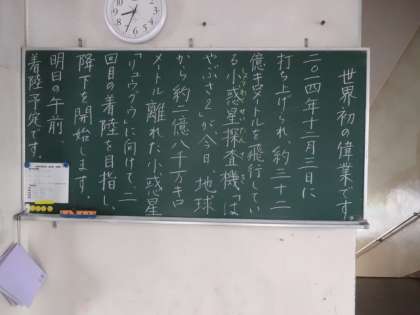 世界初の偉業です。
二〇一四年十二月三日に
打ち上げられ、約三十二
億キロメートルを飛行してい
る小惑星探査機「は
やぶさ2」が、今日 地球
から約二億八千万キロ
メートル離れた小惑星
「リュウグウ」に向けて、二
回目の着陸を目指し、
降下を開始します。
明日の午前
着陸予定です。